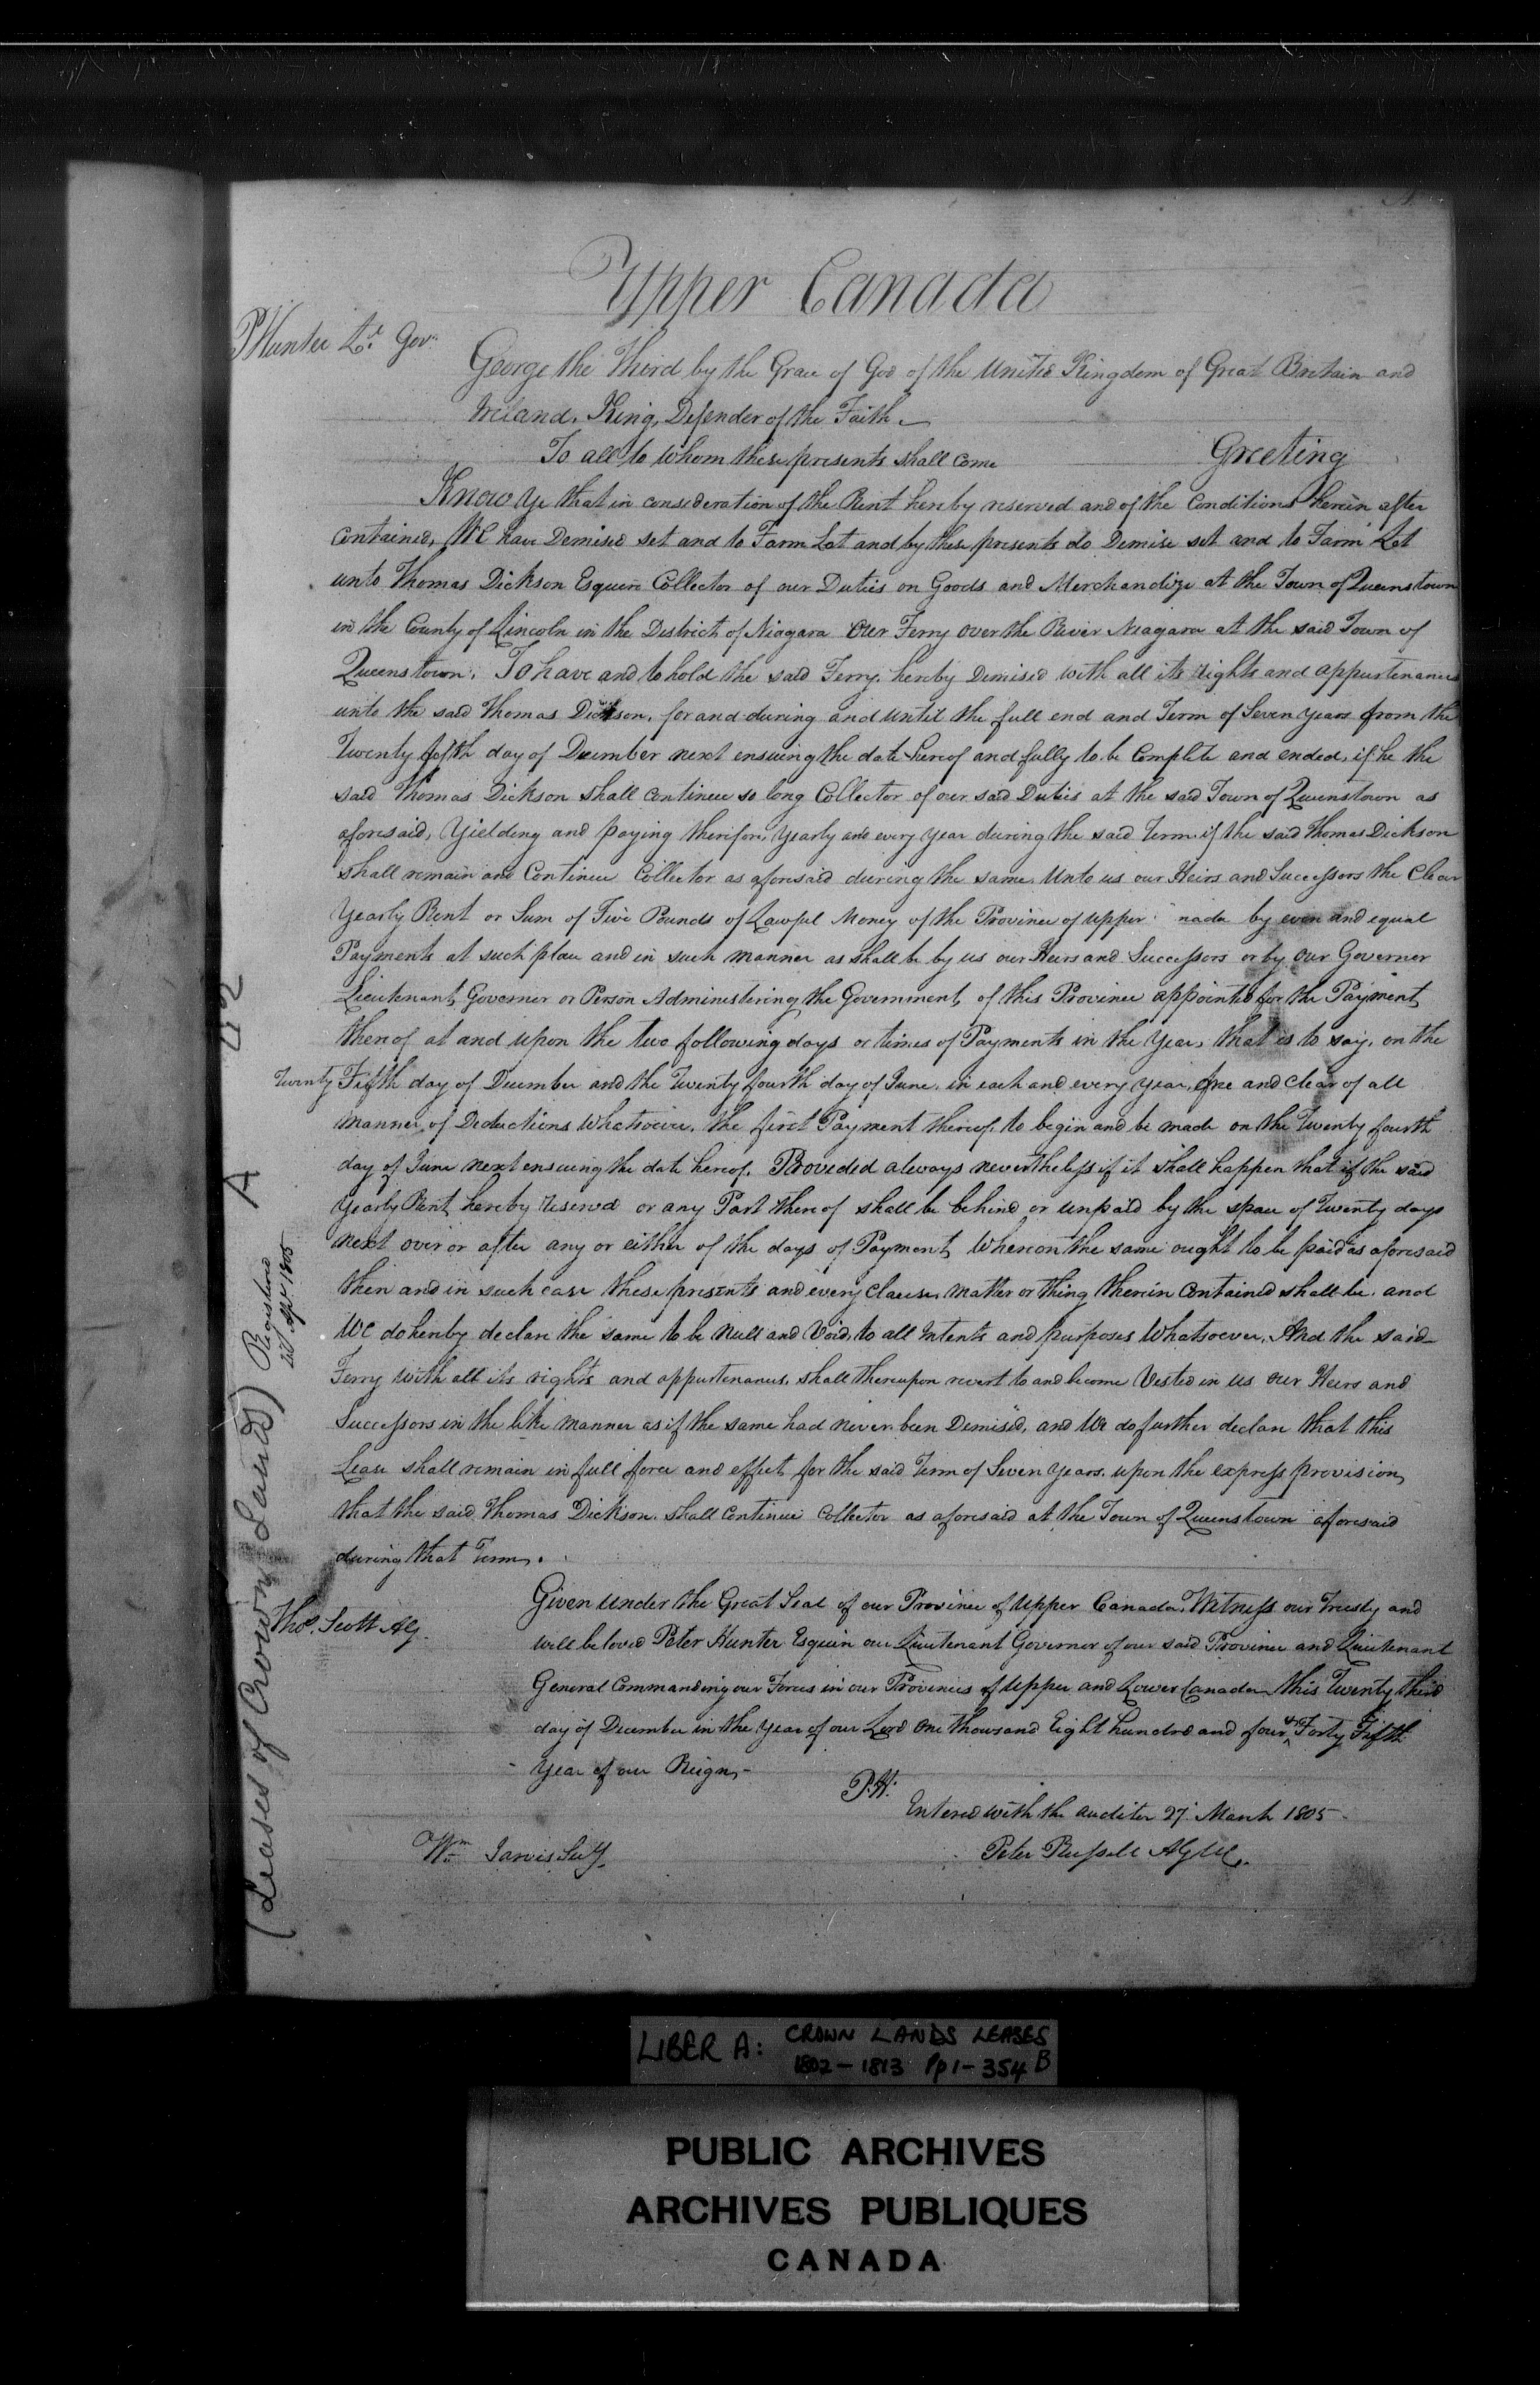 Upper Canada
P Hunter Lt. Govr.
George the Third by the Grace of God of the United Kingdom of Great Britain and
Ireland, King, Defender of the Faith
To all to whom these presents shall come Greeting
Know Ye that in consideration of the Rent hereby reserved and of the Conditions herein after
contained, We have Demised set and to Farm Let and by these presents do Demise set and to Farm Let
unto Thomas Dickson Esquire Collector of our Duties on Goods and Merchandize at the Town of Queenstown
in the County of Lincoln in the District of Niagara Our Ferry over the River Niagara at the said Town of
Queenstown, To have and to hold the said Ferry, hereby Demised with all its Rights and appurtenances
unto the said Thomas Dickson, for and during and until the full end and Term of Seven Years from the
Twenty fifth day of December next ensuing the date hereof and fully to be Complete and ended, if he the
said Thomas Dickson shall continue so long Collector of our said Duties at the said Town of Queenstown as
aforesaid, Yielding and paying therefore, yearly and every year during the said Term if the said Thomas Dickson
shall remain and Continue Collector as aforesaid during the same, Unto us our Heirs and Successors the Clear
Yearly Rent or Sum of Five Pounds of Lawful Money of the Province of Upper nada by even and equal
Payments at such place and in such manner as shall be by us our Heirs and Successors or by our Governer
Lieutenant Governer or Person Administering the Government of this Province appointed for the Payment
thereof at and upon the two following days or times of Payments in the Year, that is to say, on the
Twenty Fifth day of December and the Twenty fourth day of June, in each and every year, free and clear of all
manner of Deductions Whatsoever, the first Payment thereof to begin and be made on the Twenty fourth
day of June next ensuing the date hereof. Provided always nevertheless if it shall happen that if the said
Yearly Rent hereby reserved or any Part thereof shall be behind or unpaid by the space of Twenty days
next over or after any or either of the days of Payment Whereon the same ought to be paid as aforesaid
then and in such case these presents and every Clause, matter or thing therein contained shall be, and
We do hereby declare the same to be Null and Void, to all Intents and purposes Whatsoever, And the said
Ferry with all its rights and appurtenances, shall thereupon revert to and become Vested in us our Heirs and
Successors in the like manner as if the same had never been Demised, and We do further declare that this
Lease shall remain in full force and effect for the said Term of Seven Years, upon the express provision
that the said Thomas Dickson, shall continue Collector as aforesaid at the Town of Queenstown aforesaid
during that Term.
Given under the Great Seal of our Province of Upper Canada, Witness our Trusty and
Thos. Scott A G.
well beloved Peter Hunter Esquire our Lieutenant Governor of our said Province and Lieutenant
General Commanding our Forces in our Provinces of Upper and Lower Canada this Twenty third
day of December in the Year of our Lord One thousand Eight hundred and four & Forty Fifth
Year of our Reign.
P.H.
Entered with the auditor 27 March 1805
Wm Jarvis Secy.
Peter Russell A G
(Leases of Crown Lands) Registered
Apl 1805
A
LIBER A: CROWN LANDS LEASES
1802 - 1813 Pp 1 - 354 B
PUBLIC ARCHIVES
ARCHIVES PUBLIQUES
CANADA